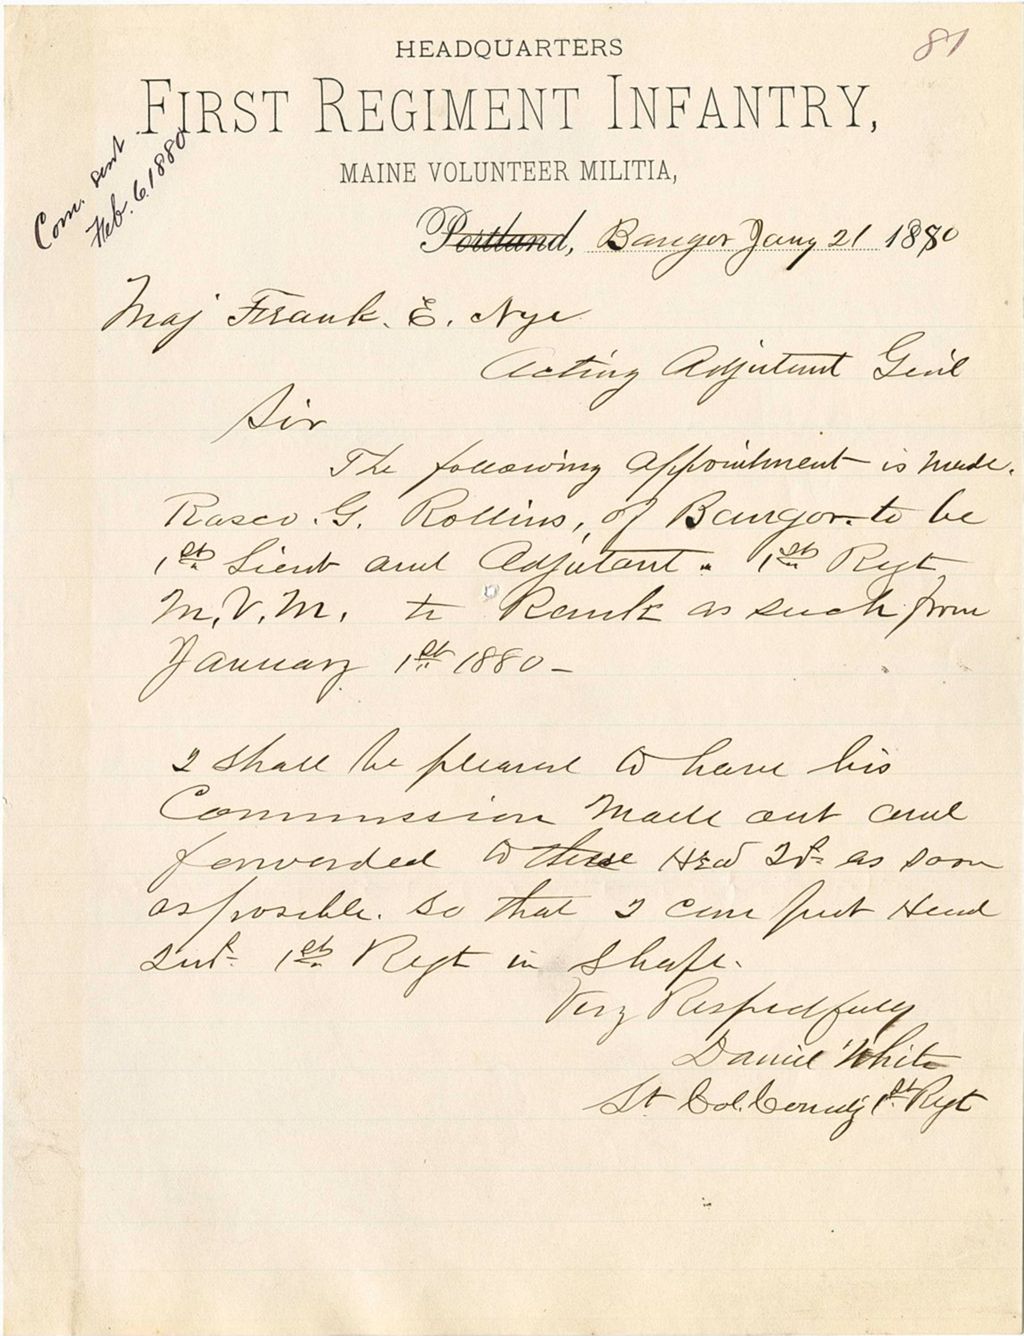 81
HEADQUARTERS
FIRST REGIMENT INFANTRY,
MAINE VOLUNTEER MILITIA,
Com. sent
Feb. 6. 1880
Portland, Bangor Jany 21 1880
Maj Frank. E. Nye
Acting Adjutant Genl
Sir
The following appointment is made.
Rasco. G. Rollins, of Bangor. to be
1st Lieut and Adjutant. 1st Regt
M. V. M. to Rank as such from
January 1st 1880 -
I shall be pleased to have his
Commission made out and
forwarded to these Head Qrs as soon
as possible. So that I can put Head
Qrs 1st Regt in shape.
Very Respectfully
Daniel White
Lt Col. Comdg 1st Regt